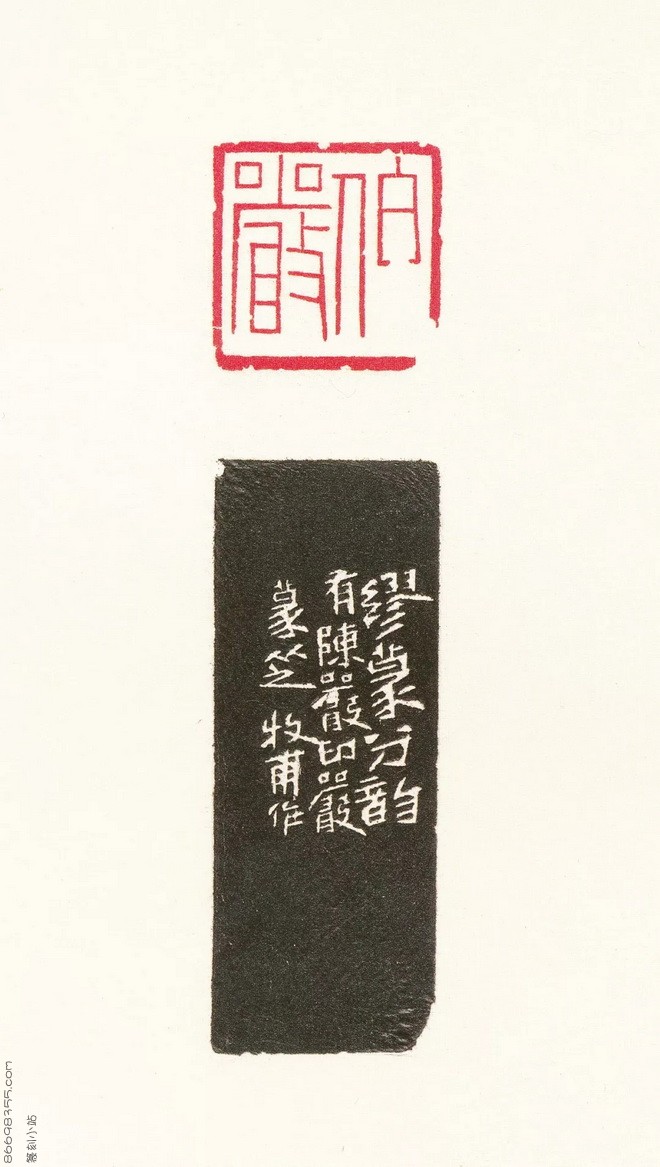 伯嚴
繆篆分韵
有陳嚴印嚴
篆从之 牧甫作
86698355.com
篆刻小站